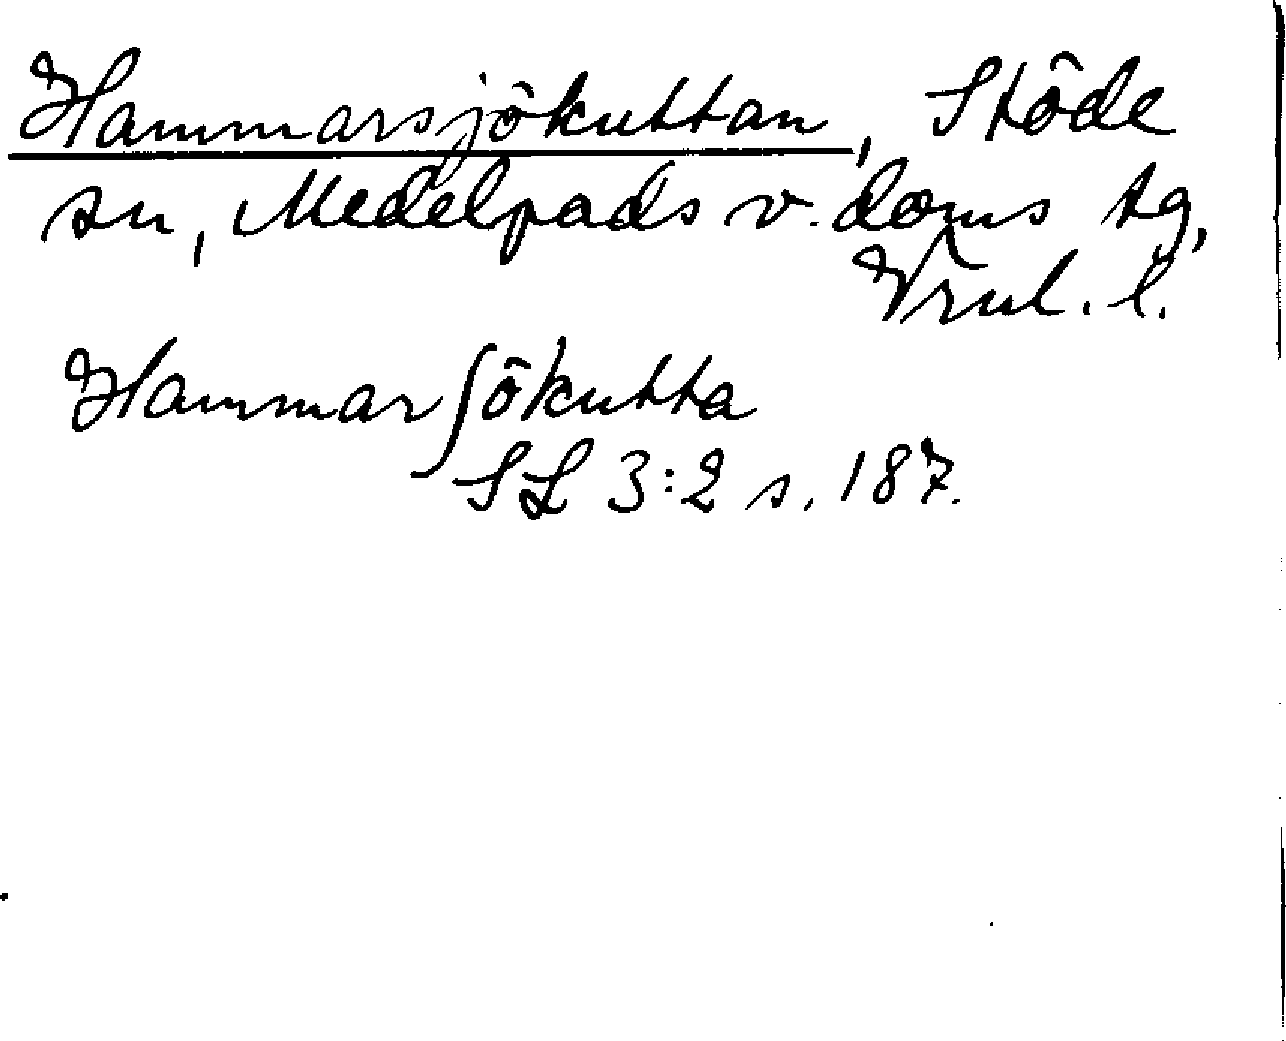 Hammarsjökuttan, Stöde
sn, Medelpads v. doms tg,
Vrnl. l.
Hammarʃökutta
SL 3:2 s. 187.